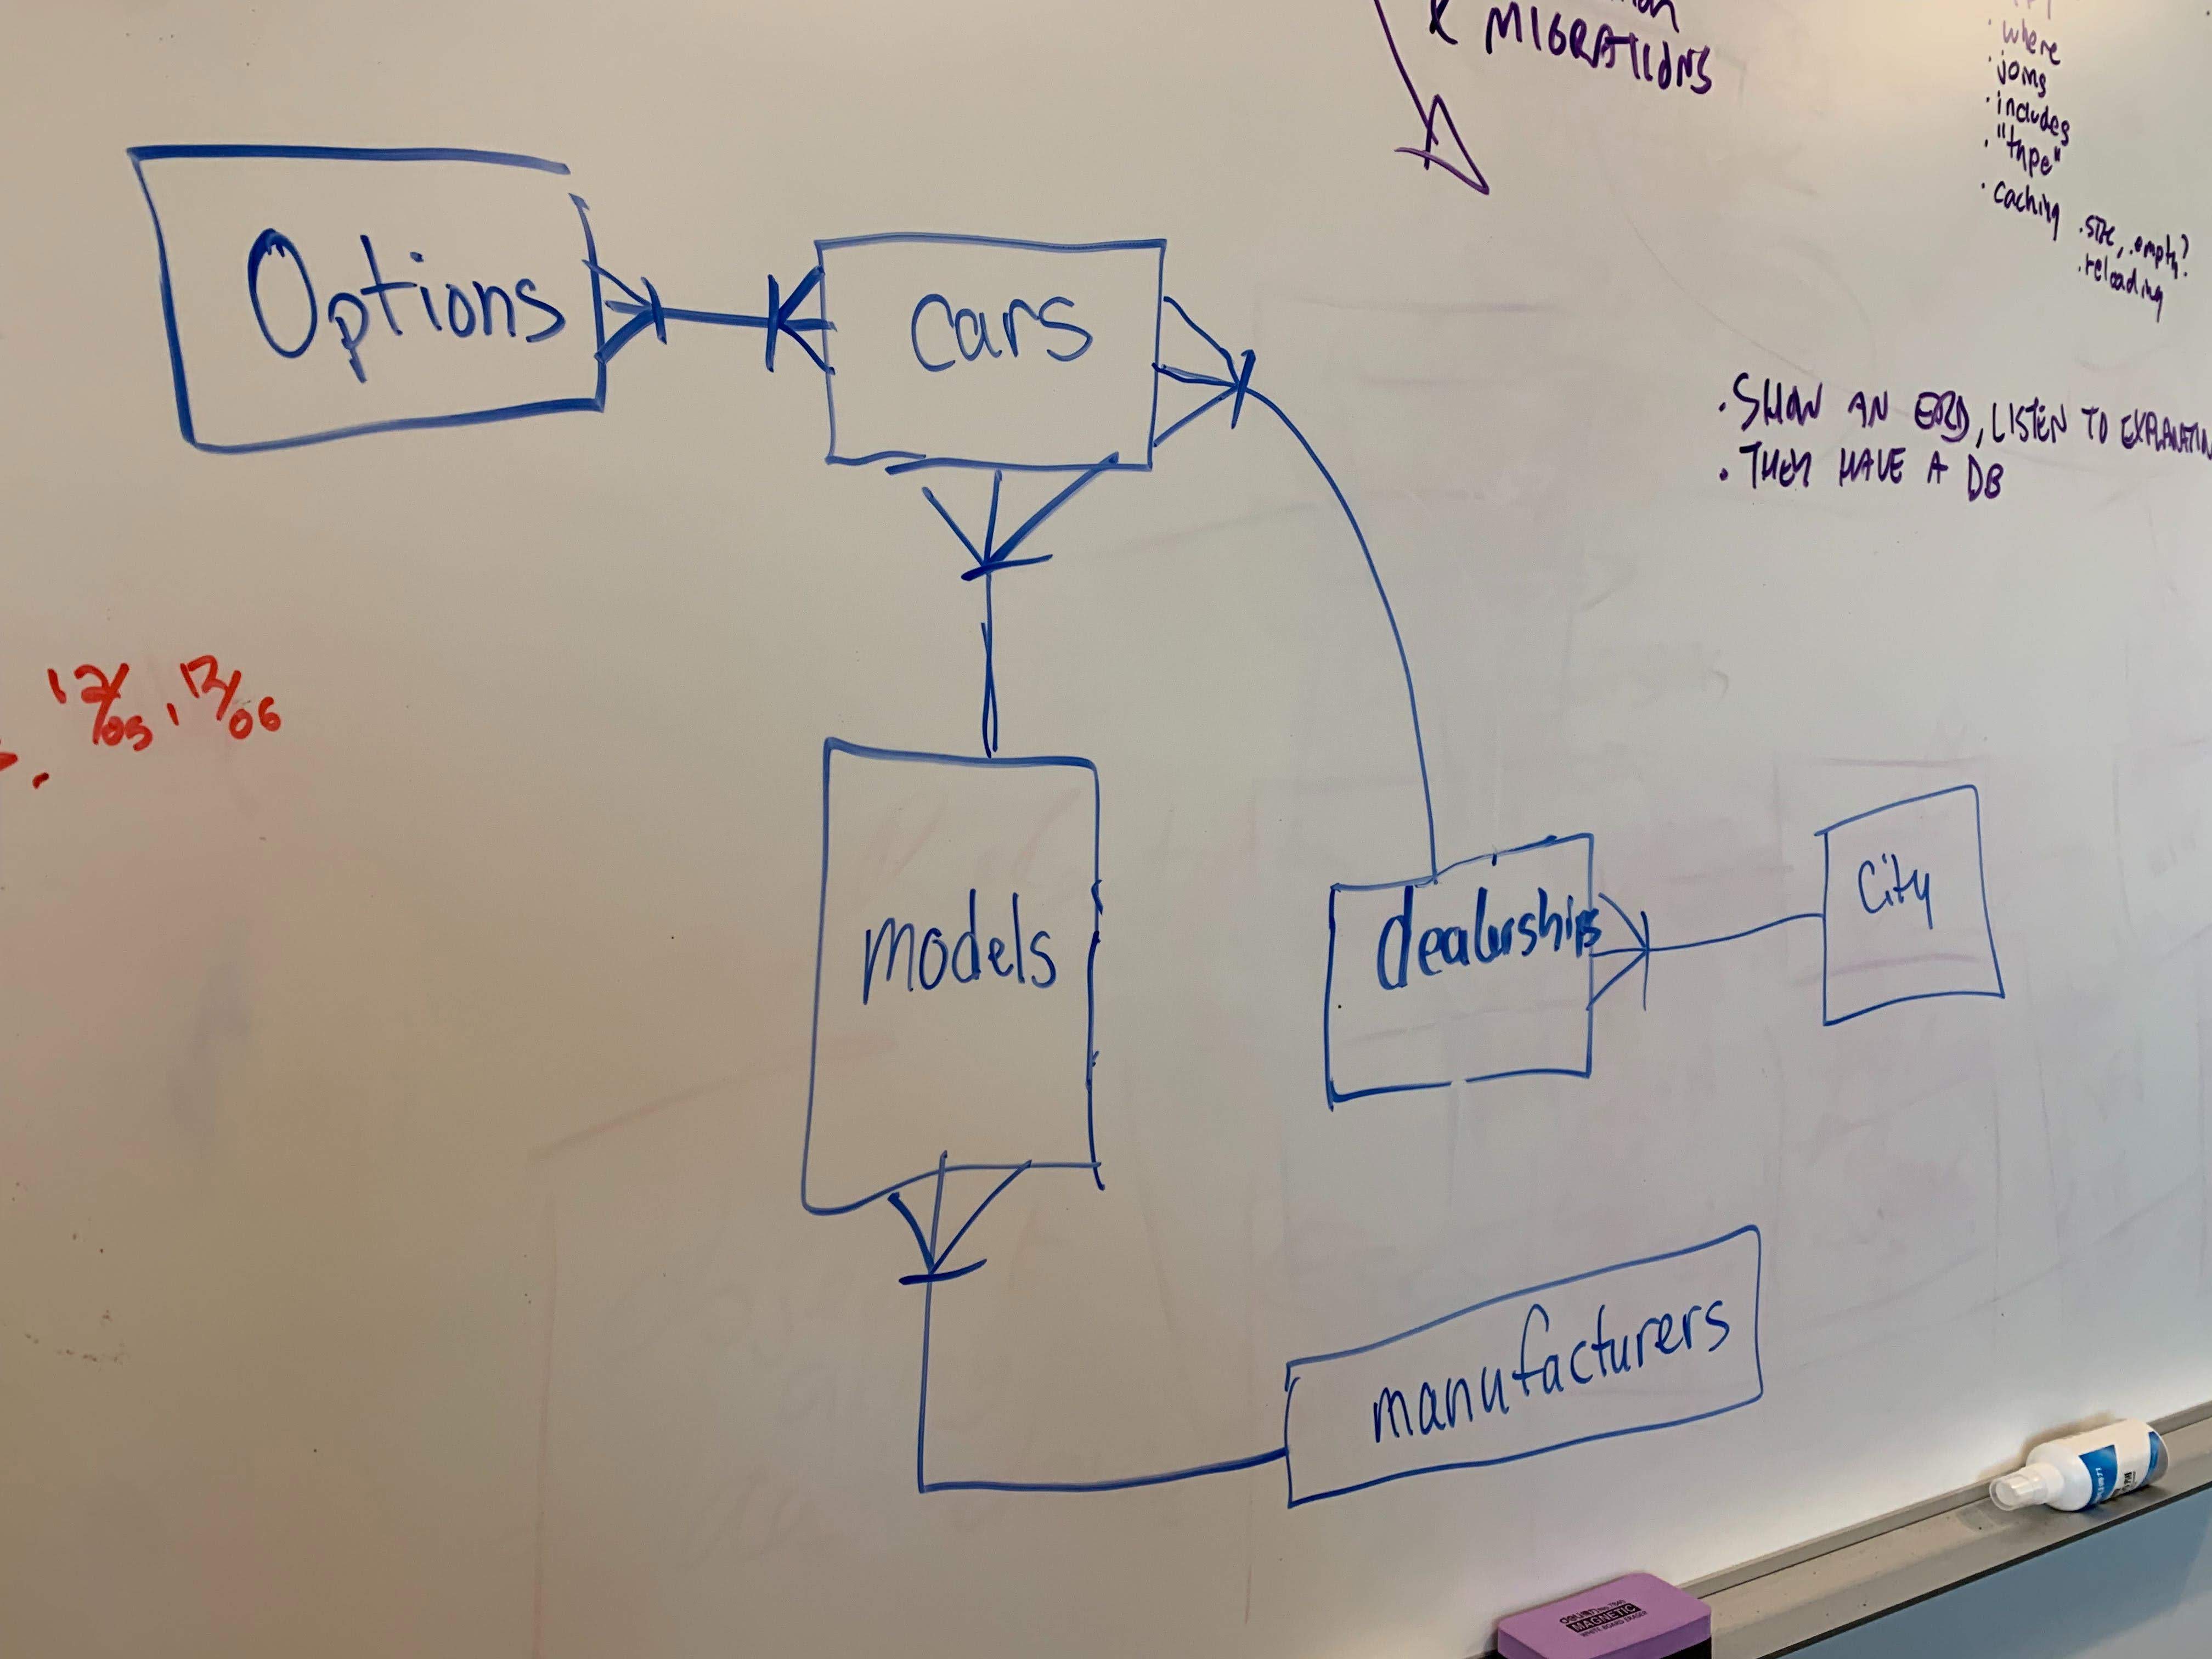 & MIGRATIONS
· where
· joins
· includes
· "type"
· caching .size, .empty?
.reloading
Options
cars
· SHOW AN ERD, LISTEN TO EXPLANATION
· THEY HAVE A DB
12/05, 12/06
models
dealerships
City
manufacturers
MAGNETIC
WHITE BOARD ERASER